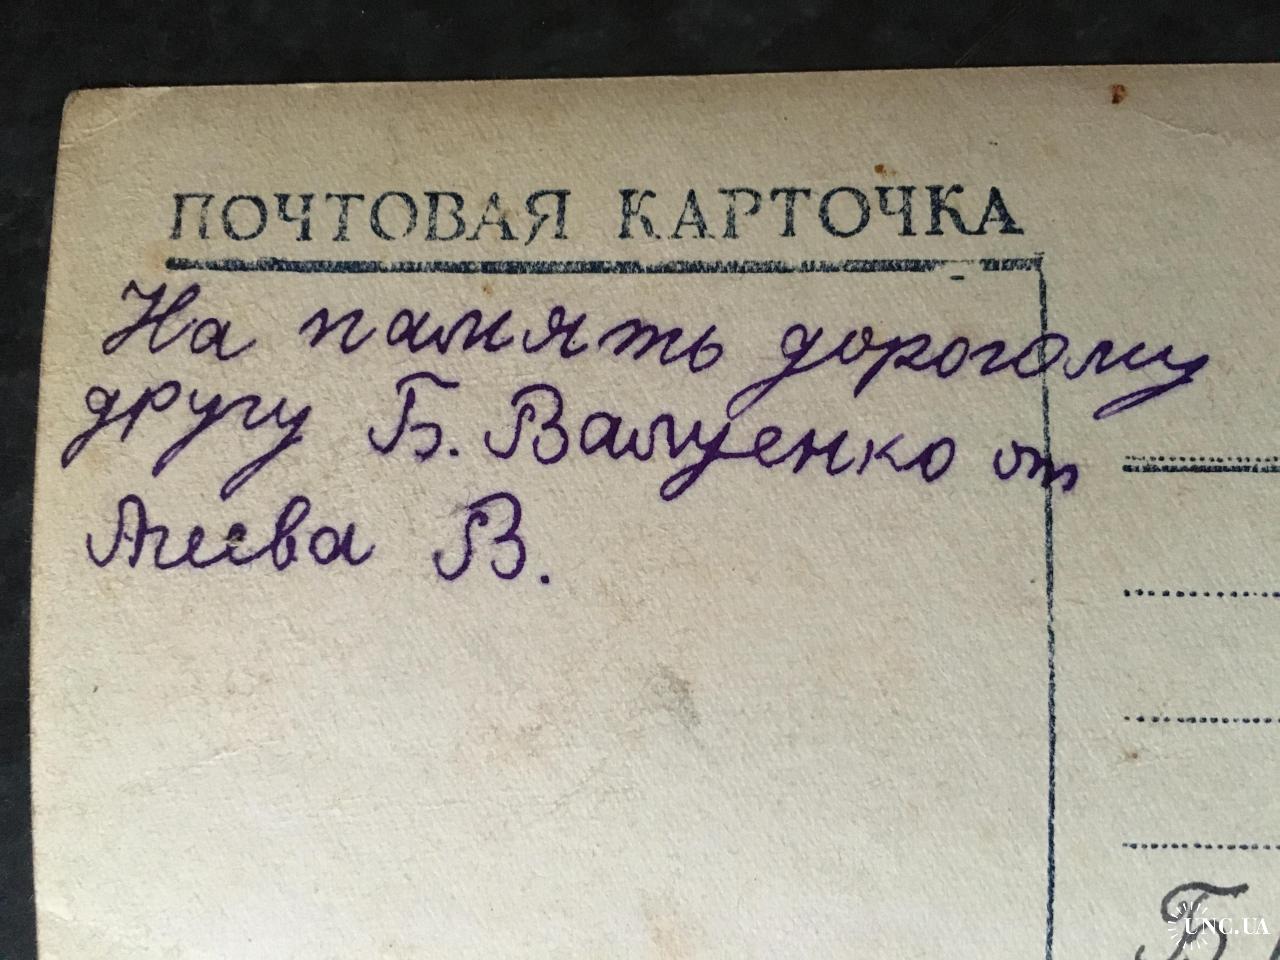 ПОЧТОВАЯ КАРТОЧКА
На память дорогому
другу Б. Валуенко от
В.
Б
UNC.UA